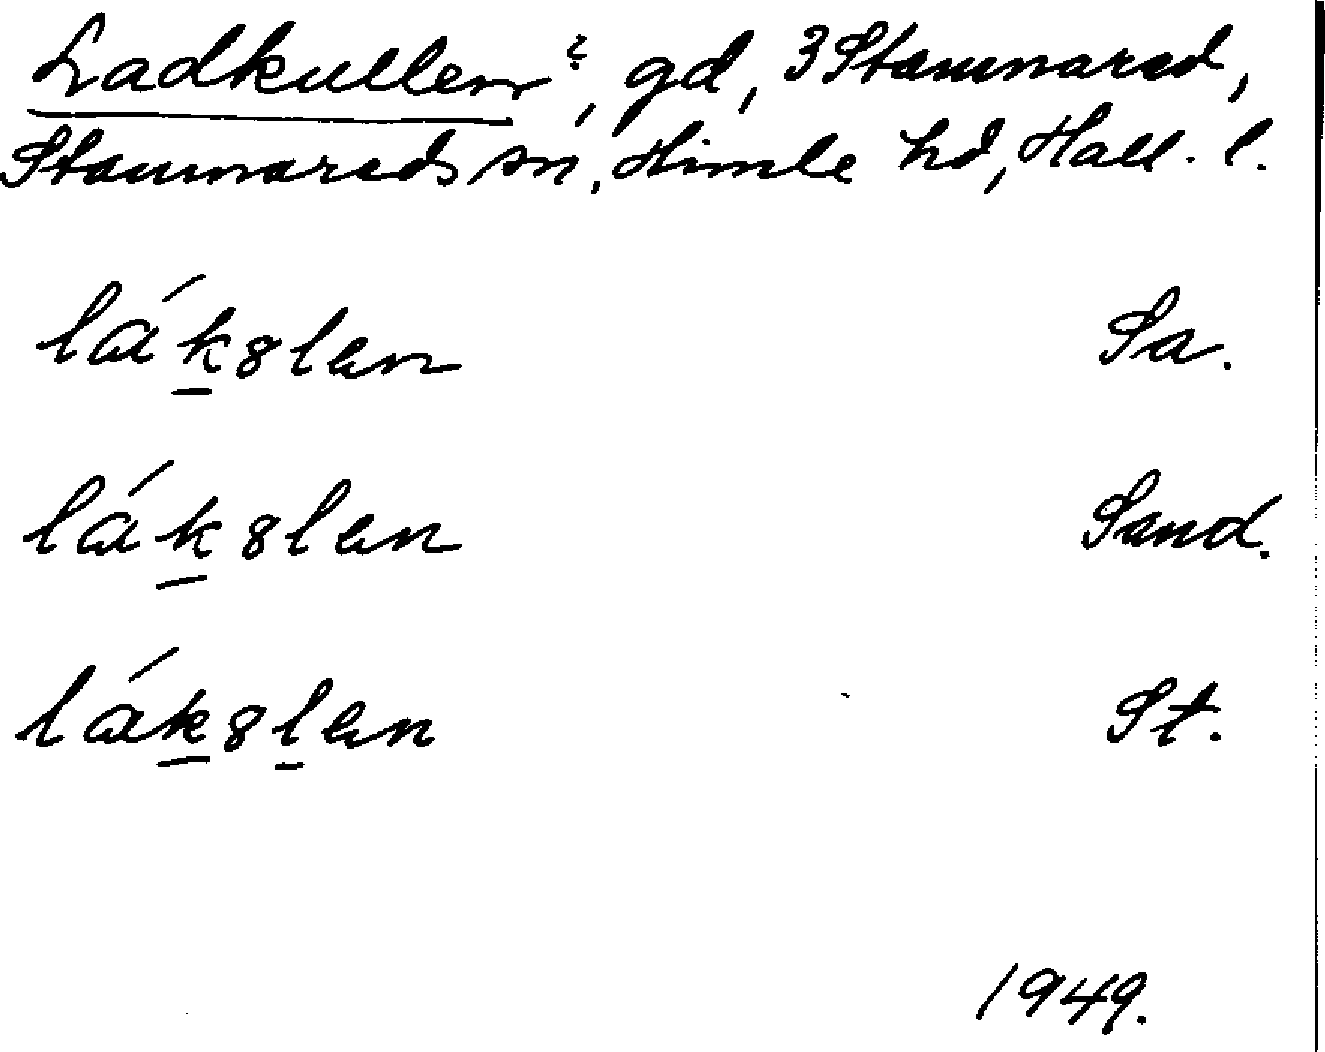 Ladkullen?, gd, 3 Stamnared,
Stamnareds sn, Himle hd, Hall. l.
lák8len Sa.
lák8len Sand.
lák8len St.
1949.